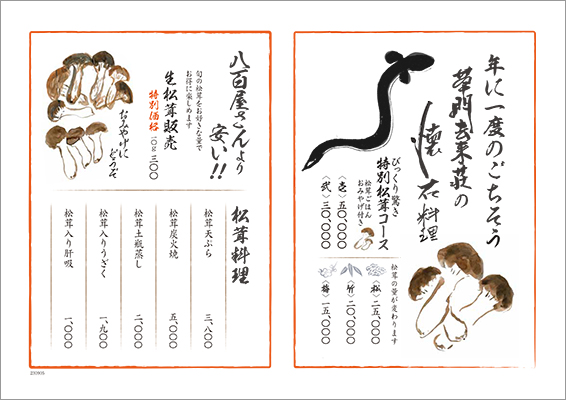 年に一度のごちそう
帯門去来荘の
懐石料理
びっくり驚き
特別松茸コース
松茸ごはん
おみやげ付き
〈壱〉五〇、〇〇〇
〈弐〉三〇、〇〇〇
松茸の量が変わります
〈松〉二五、〇〇〇
〈竹〉二〇、〇〇〇
〈梅〉一五、〇〇〇
八百屋さんより
安い!!
旬の松茸をお好きな量で
お得に楽しめます
生松茸販売
特別価格
三〇〇
おみやげに
どうぞ
松茸料理
松茸天ぷら 三、八〇〇
松茸炭火焼 五、〇〇〇
松茸土瓶蒸し 二、〇〇〇
松茸入りうざく 一、九〇〇
松茸入り肝吸 一、〇〇〇